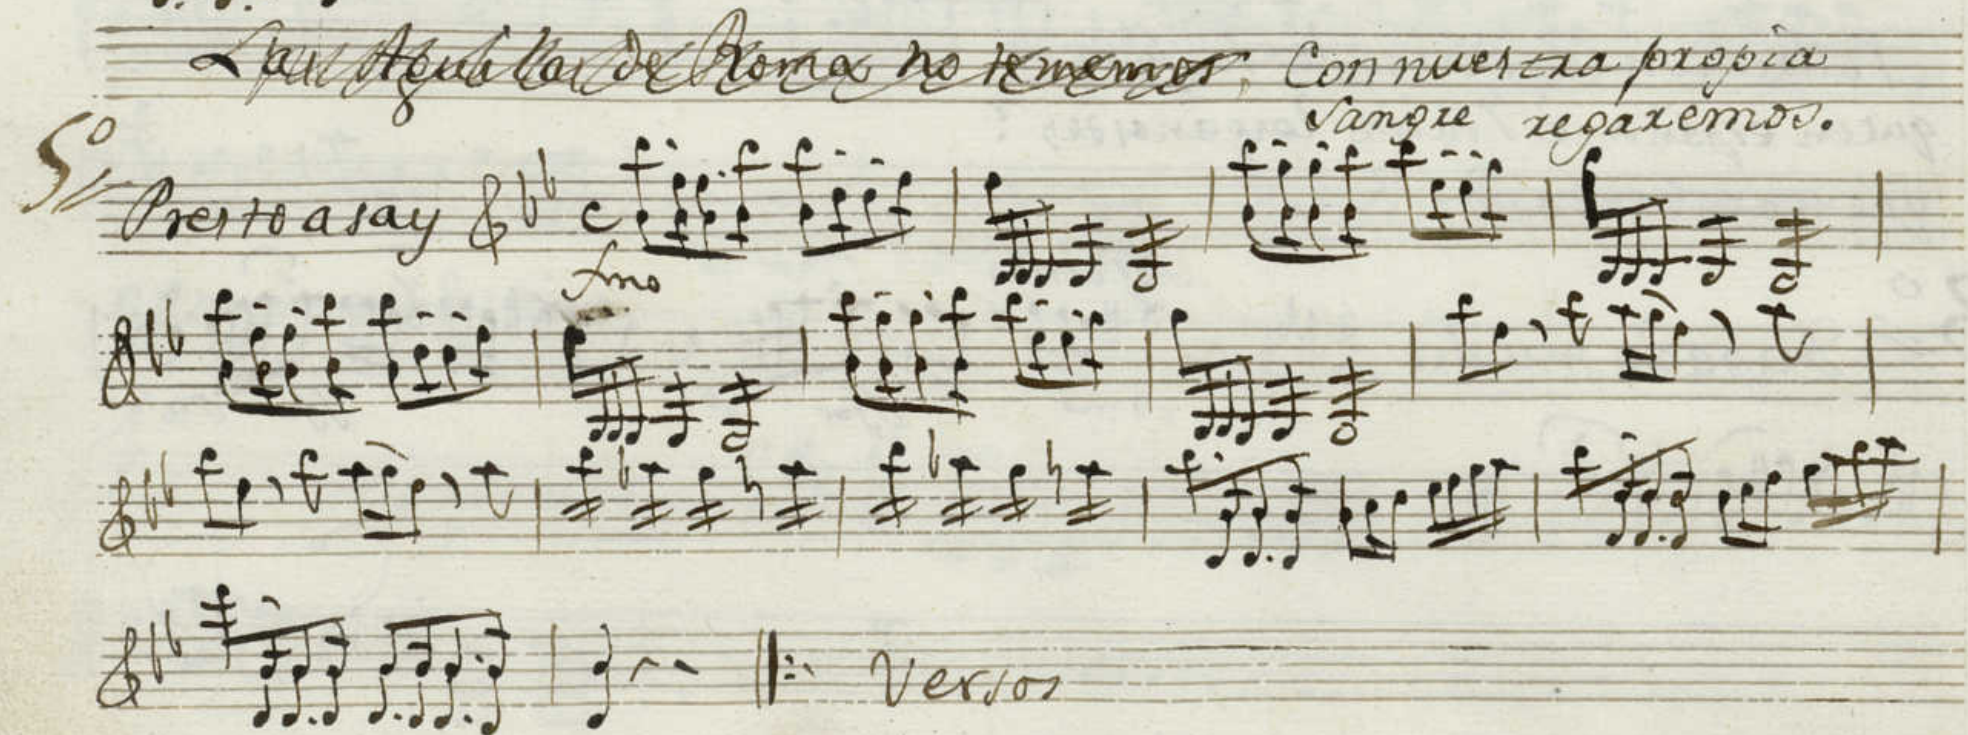 Las Aguilas de Roma no tememos, Con nuestra propia
Sangre regaremos.
5º
Presto asay
fmo
Versos